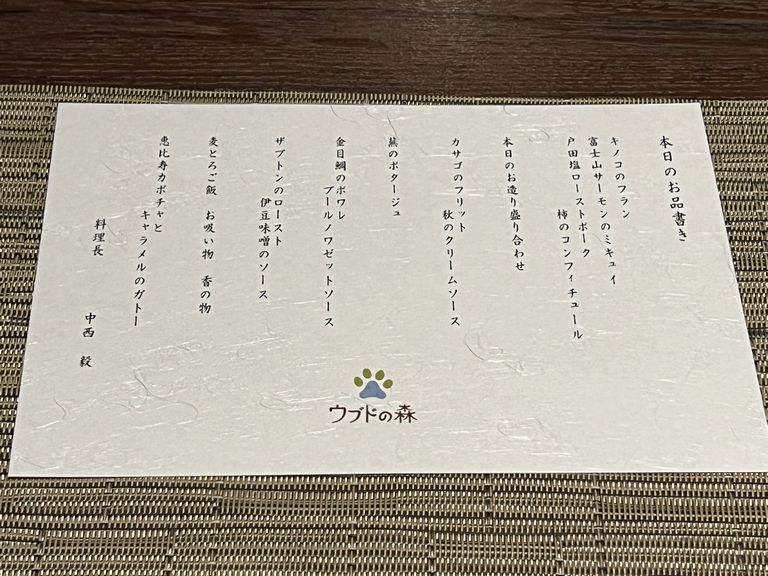 本日のお品書き
キノコのフラン
富士山サーモンのミキュイ
戸田塩ローストポーク
柿のコンフィチュール
本日のお造り盛り合わせ
カサゴのフリット
秋のクリームソース
蕪のポタージュ
金目鯛のポワレ
ブールノワゼットソース
ザブトンのロースト
伊豆味噌のソース
麦とろご飯　お吸い物　香の物
恵比寿カボチャと
キャラメルのガトー
料理長　中西　毅
ウブドの森